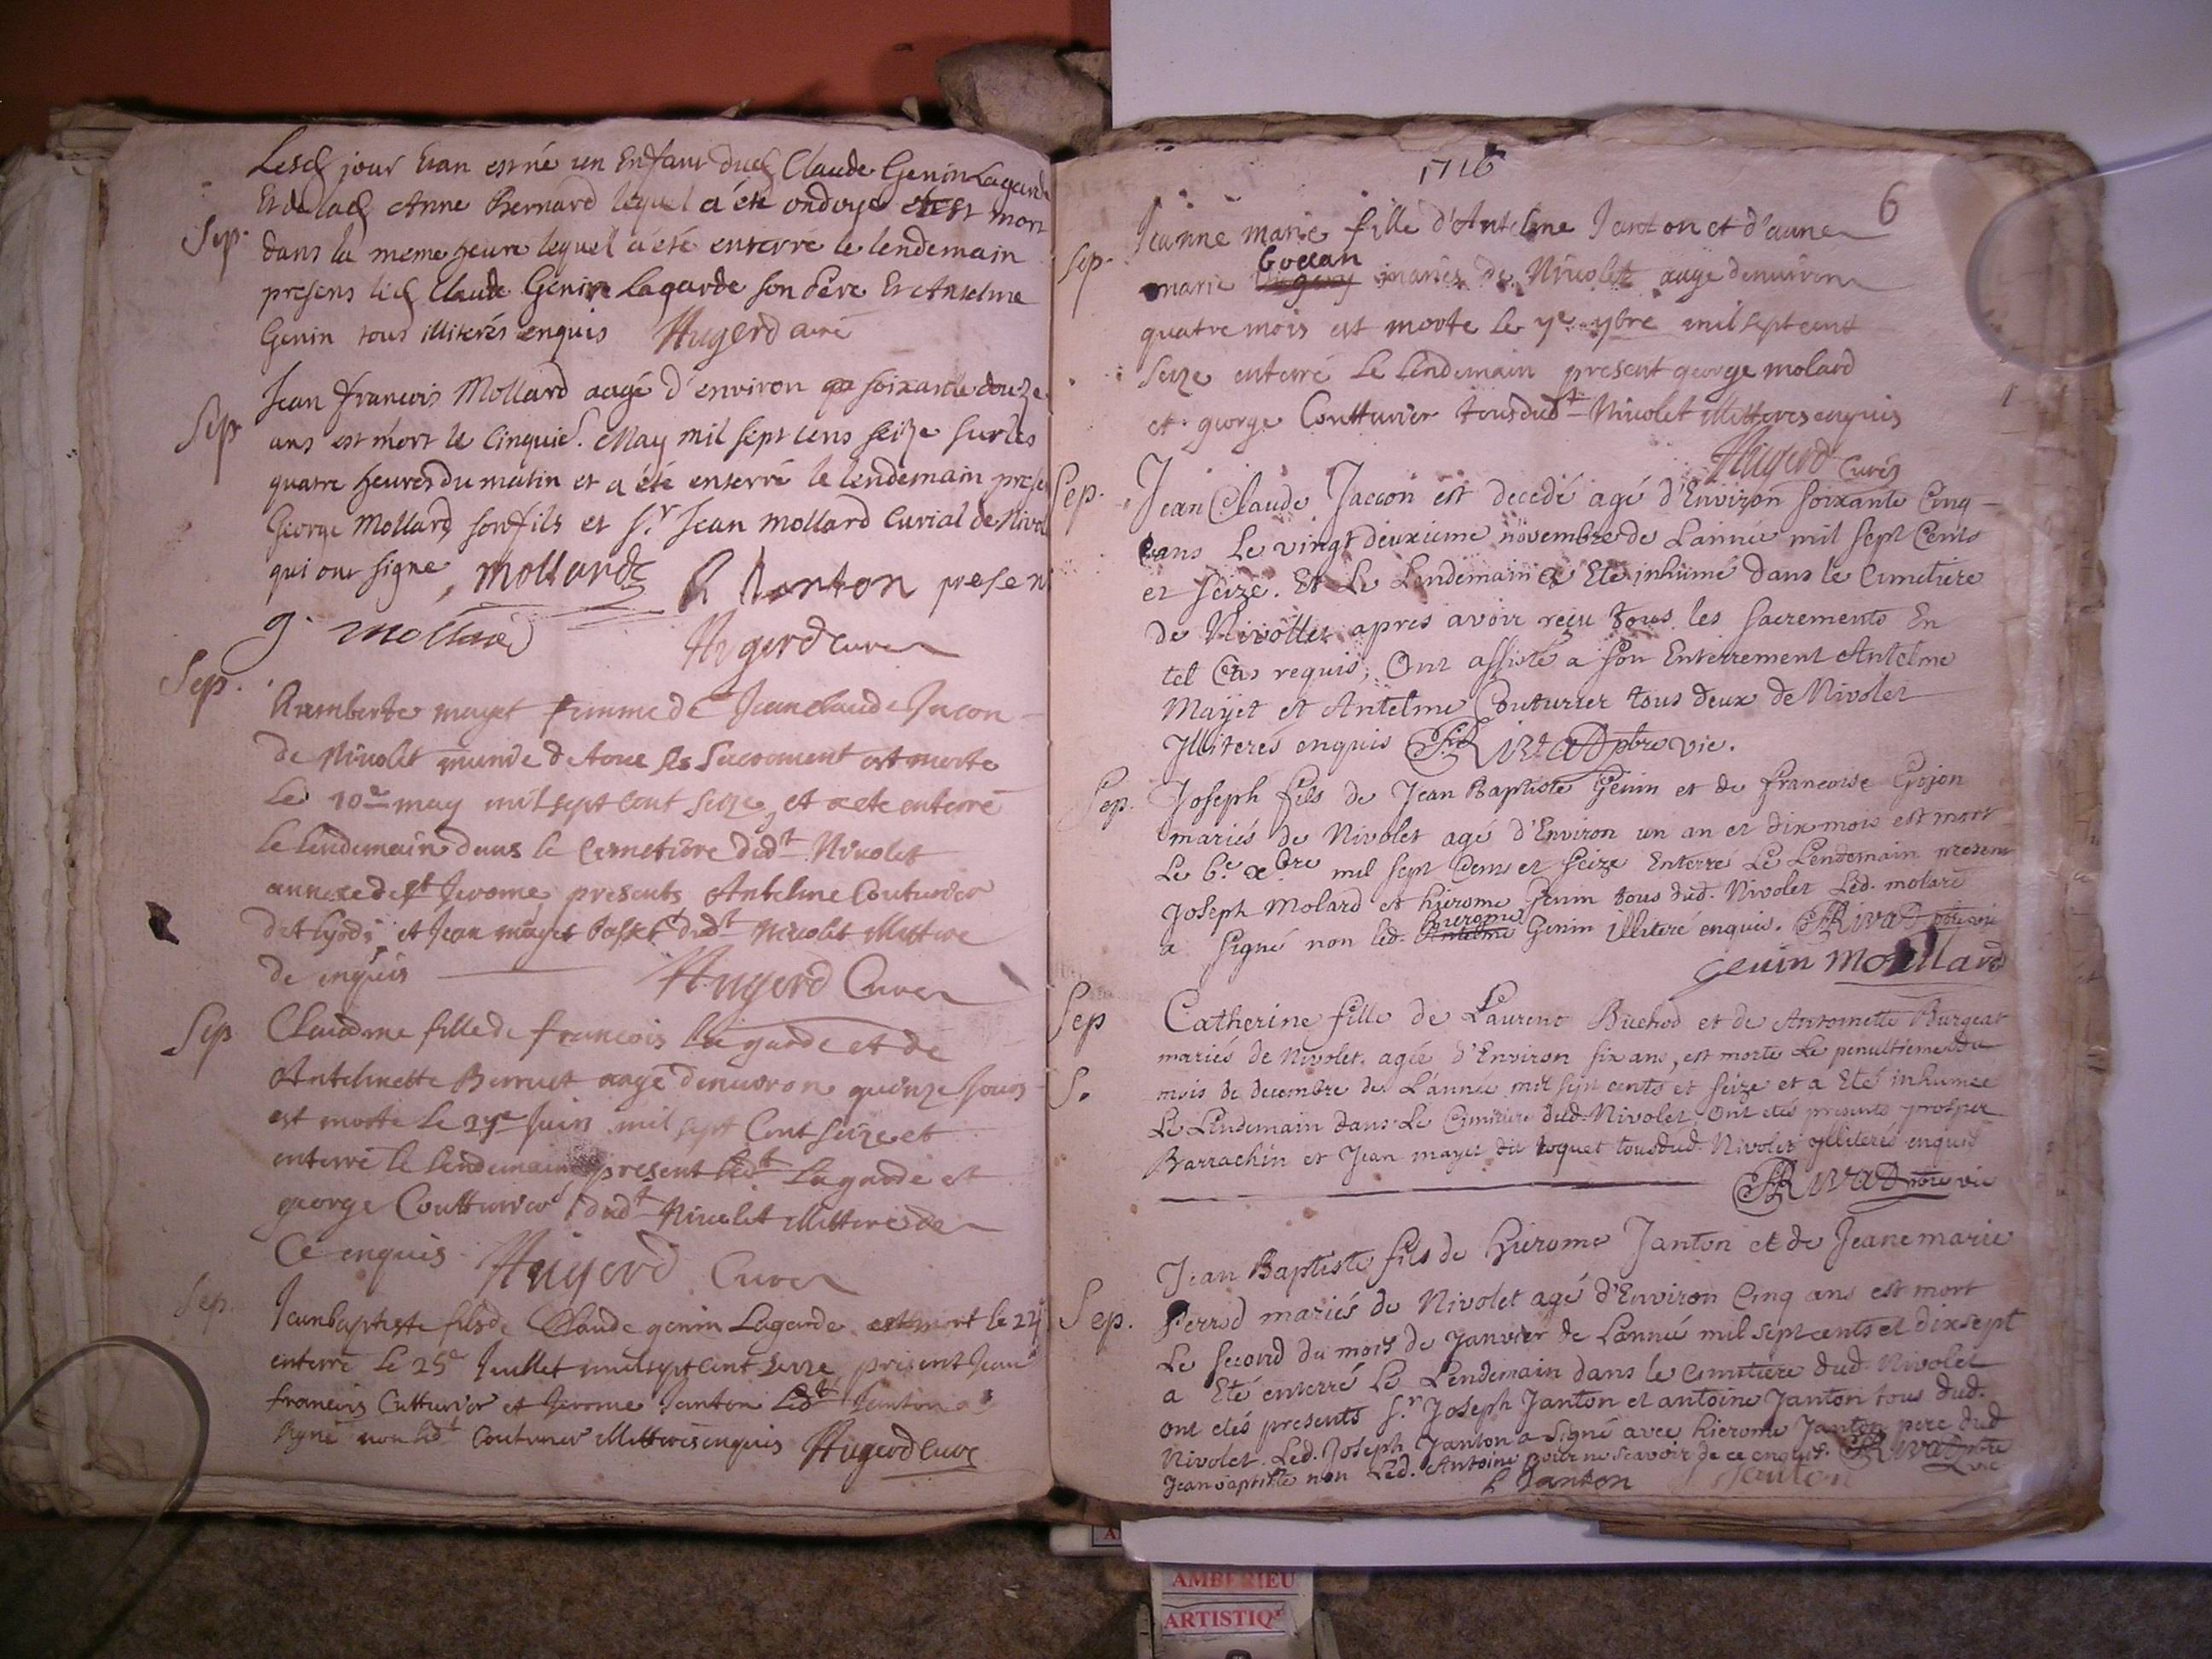 Lesd jour et an est né un Enfant dud Claude Genin Lagarde
Et de lad Anne Bernard lequel a été ondoyé et est mort
Sep. dans la meme heure lequel a été enterré le lendemain
presens led Claude Genin Lagarde son Pere Et Antelme
Genin tous illiterés enquis Augerd curé
Jean francois Mollard aagé d'environ soixante douze
Sep ans est mort le cinquie. May mil sept cens seize sur les
quatre heures du matin et a été enterré le lendemain prese
George Mollard son fils et s.r Jean Mollard Curial de Nivo
qui ont signe, mollard Janton present
g. mollard Augerd curé
Sep.
Ramberte mayet femme de Jean claude Jacon
de Nivolet munie de tous les Sacrement est morte
Le 10e may mil sept cent seize, et a ete enterré
le lendemain dans le Cemetiere dudt Nivolet
annexe de st Jerome presents Antelme Couturier
et Jean mayet dudt Nivolet illittere
de enquis Augerd Curé
Sep Claudine fille de francois Lagarde et de
Antelmette Bernard aagé d'environ quinze jours
est morte le Juin mil sept Cent seize et
enterré le lendemain present ledt Lagarde et
george Coutturier dudt Nivolet illitteres de
Ce enquis Augerd Curé
Sep. Jean baptiste fils de Claude genin Lagarde est mort le 24
enterré Le 25e Juillet mil sept cent seize present Jean
francois Cutturier et Jerome Janton Ledt Janton a
signé non ledt Couturier illitteres enquis Augerd curé
1716
6
Jeanne marie fille d'Antelme Janton et d'anne
Sep. Goddan
marie mariés de Nivolet aagé d'environ
quatre mois est morte le 9bre mil sept cent
seize enterré Le Lendemain present george molard
et george Coutturier tous dudt Nivolet illitteres enquis
Augerd Curé
Sep. Jean Claude Jaccon est decedé agé d'Environ soixante Cinq
ans Le vingt deuxieme novembre de L'année mil sept Cents
et seize. Et Le Lendemain a Eté inhumé dans le Cimetiere
de Nivollet apres avoir reçu tous les sacrements En
tel Cas requis, Ont assisté a son Enterrement Antelme
Mayet et Antelme Couturier tous deux de Nivolet
Jlliterés enquis Rivat pbre vic.
Sep. Joseph fils de Jean Baptiste Genin et de francoise Gojon
mariés de Nivolet agé d'Environ un an et dix mois est mort
Le 6.e xbre mil sept Cens et seize Enterré Le Lendemain present
Joseph Molard et hierome Genin tous dud. Nivolet Led. molard
hierome
a signé non led. Antelme Genin illiteré enquis. Rivat pbre vic
genin mollard
Sep Catherine fille de Laurent Buchod et de Antoinette Burgeat
mariés de Nivolet. agée d'Environ six ans, est morte Le penultieme du
S. mois de decembre de L'année mil sept cents et seize et a Eté inhumee
Le Lendemain dans Le Cimitiere dud. Nivolet, Ont etés presents prosper
Barrachin et Jean mayet dit toquet tous dud. Nivolet illiterés enquis
Rivat pbre vic
Jean Baptiste fils de hierome Janton et de Jeane marie
Sep. Perrod mariés de Nivolet agé d'Environ Cinq ans est mort
Le second du mois de Janvier de L'année mil sept cents et dix sept
a Eté enterré Le Lendemain dans le Cimitiere dud. Nivolet
ont etés presents s.r Joseph Janton et antoine Janton tous dud.
Nivolet. Led. Joseph Janton a signé avec hierome Janton pere dud
Jean baptiste non Led. Antoine pour ne scavoir de ce enquis. Rivat pbre
vic
Janton Janton
AMBERIEU
ARTISTIQ